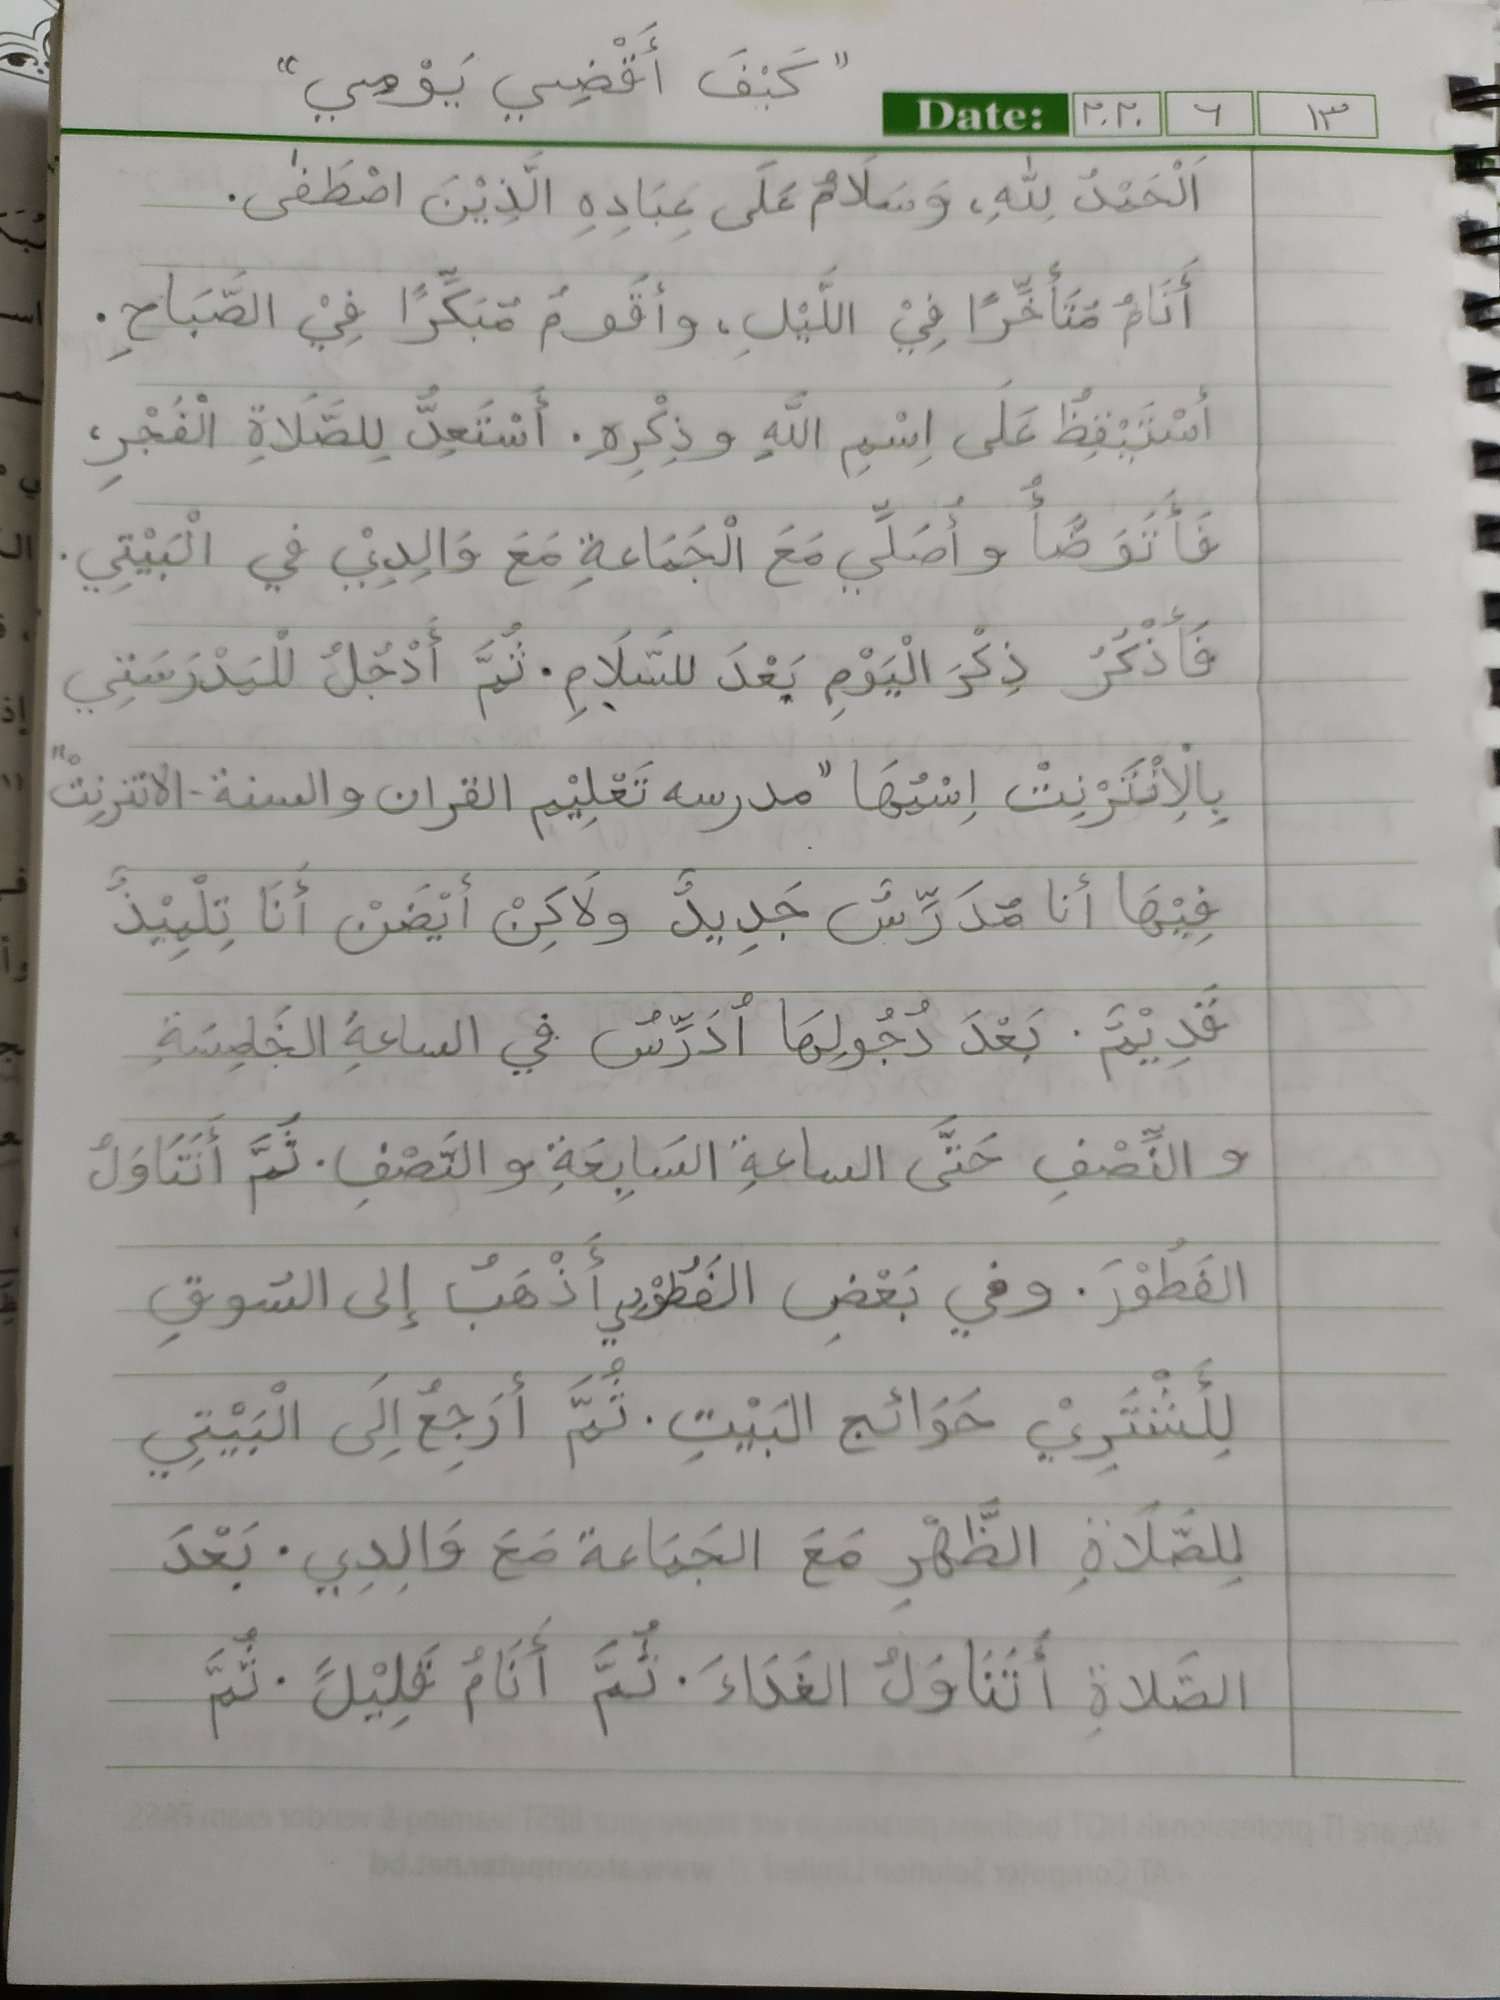 "كَيْفَ أَقْضِي يَوْمِي"
Date: ٢٠٢٠ ٦ ١٣
اَلْحَمْدُ لِلّٰهِ، وَسَلَامٌ عَلَى عِبَادِهِ الَّذِيْنَ اصْطَفٰى.
أَنَامُ مُتَأَخِّرًا فِيْ اللَّيْلِ، وأقُومُ مُبَكِّرًا فِيْ الصَّبَاحِ.
أَسْتَيْقِظُ عَلَى اِسْمِ اللَّهِ وذِكْرِهِ. أَسْتَعِدُّ لِلصَّلَاةِ الْفَجْرِ،
فَأَتَوَضَّأُ وأُصَلِّي مَعَ الْجَمَاعةِ مَعَ وَالِدِيْ في الْبَيْتِي.
فَأَذْكُرُ ذِكْرَ الْيَوْمِ بَعْدَ للسَّلَامِ. ثُمَّ أَدْخُلُ لْلمَدْرَسَتِي
بِالْاِنْتَرْنِتْ اِسْمُهَا "مدرسه تَعْلِيْم القران والسنة-الانترنِتْ"
فِيْهَا أنا مُدَرِّسٌ جَدِيدٌ ولَاكِنْ أيْضَنْ أَنَا تِلْمِيْذٌ
قَدِيْمٌ. بَعْدَ دُخُولِهَا اُدَرِّسُ في الساعةِ الخَامِسَةِ
و النِّصْفِ حَتَّى الساعةِ السَابِعَةِ و النَّصْفِ. ثُمَّ أَتَنَاوَلُ
الفَطُوْرَ. وفي بَعْضِ الفَطُوْرِي أَذْهَبُ إلى السُوقِ
لِأَشْتَرِيْ حَوَائج البَيْتِ. ثُمَّ أرَجِعُ اِلَى الْبَيْتِي
لِلصَّلَاةِ الظُّهْرِ مَعَ الجَمَاعة مَعَ وَالِدِي. بَعْدَ
الصَّلاةِ أَتَنَاوَلُ الغَدَاءَ. ثُمَّ أَنَامُ قَلِيْلً. ثُمَّ